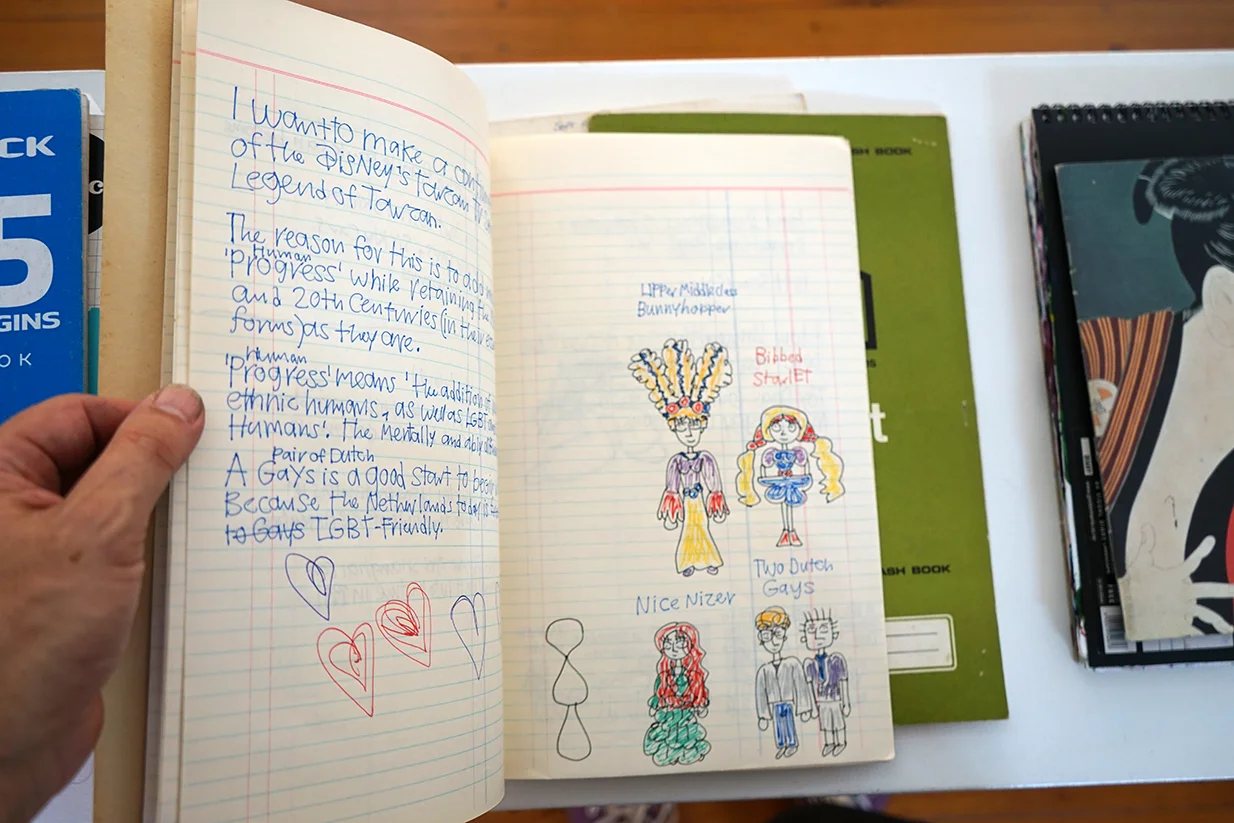 I want to make a
of the DisNey's Tarzan
Legend of Tarzan.
The reason for this is to add
Human
'Progress' while retaining the
and 20th Centuries (in their
forms) as they are.
Human
'Progress' means 'the addition of
ethnic humans, as well as LGBT
Humans'. The Mentally and
Pair of Dutch
A Gays is a good start to
Because the Netherlands today is
to Gays LGBT-Friendly.
Upper Middleclass
Bunnyhopper
Bibbed
StarlET
Two Dutch
Gays
Nice Nizer
CK
5
GINS
OK
SH BOOK
t
ASH BOOK